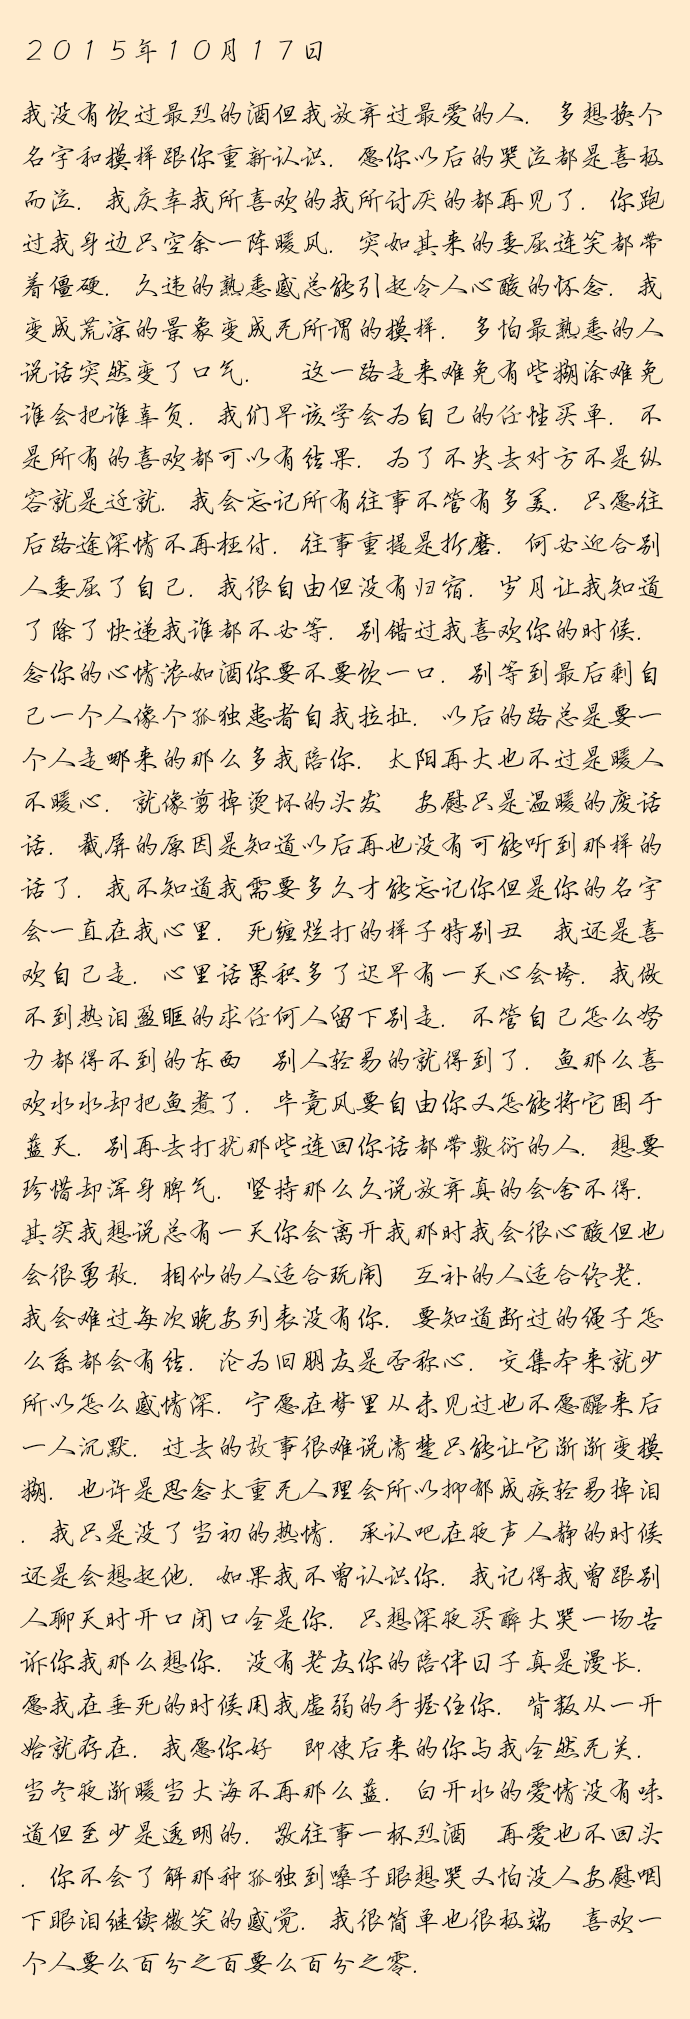 2015年10月17日
我没有饮过最烈的酒但我放弃过最爱的人. 多想换个
名字和模样跟你重新认识. 愿你以后的哭泣都是喜极
而泣. 我庆幸我所喜欢的我所讨厌的都再见了. 你跑
过我身边只空余一阵暖风. 突如其来的委屈连笑都带
着僵硬. 久违的熟悉感总能引起令人心酸的怀念. 我
变成荒凉的景象变成无所谓的模样. 多怕最熟悉的人
说话突然变了口气.  这一路走来难免有些糊涂难免
谁会把谁辜负. 我们早该学会为自己的任性买单. 不
是所有的喜欢都可以有结果. 为了不失去对方不是纵
容就是迁就. 我会忘记所有往事不管有多美. 只愿往
后路途深情不再枉付. 往事重提是折磨. 何必迎合别
人委屈了自己. 我很自由但没有归宿. 岁月让我知道
了除了快递我谁都不必等. 别错过我喜欢你的时候.
念你的心情浓如酒你要不要饮一口. 别等到最后剩自
己一个人像个孤独患者自我拉扯. 以后的路总是要一
个人走哪来的那么多我陪你. 太阳再大也不过是暖人
不暖心. 就像剪掉烫坏的头发 安慰只是温暖的废话
话. 截屏的原因是知道以后再也没有可能听到那样的
话了. 我不知道我需要多久才能忘记你但是你的名字
会一直在我心里. 死缠烂打的样子特别丑 我还是喜
欢自己走. 心里话累积多了迟早有一天心会垮. 我做
不到热泪盈眶的求任何人留下别走. 不管自己怎么努
力都得不到的东西 别人轻易的就得到了. 鱼那么喜
欢水水却把鱼煮了. 毕竟风要自由你又怎能将它困于
蓝天. 别再去打扰那些连回你话都带敷衍的人. 想要
珍惜却浑身脾气. 坚持那么久说放弃真的会舍不得.
其实我想说总有一天你会离开我那时我会很心酸但也
会很勇敢. 相似的人适合玩闹 互补的人适合终老.
我会难过每次晚安列表没有你. 要知道断过的绳子怎
么系都会有结. 沦为旧朋友是否称心. 交集本来就少
所以怎么感情深. 宁愿在梦里从未见过也不愿醒来后
一人沉默. 过去的故事很难说清楚只能让它渐渐变模
糊. 也许是思念太重无人理会所以抑郁成疾轻易掉泪
. 我只是没了当初的热情. 承认吧在夜声人静的时候
还是会想起他. 如果我不曾认识你. 我记得我曾跟别
人聊天时开口闭口全是你. 只想深夜买醉大哭一场告
诉你我那么想你. 没有老友你的陪伴日子真是漫长.
愿我在垂死的时候用我虚弱的手握住你. 背叛从一开
始就存在. 我愿你好 即使后来的你与我全然无关.
当冬夜渐暖当大海不再那么蓝. 白开水的爱情没有味
道但至少是透明的. 敬往事一杯烈酒 再爱也不回头
. 你不会了解那种孤独到嗓子眼想哭又怕没人安慰咽
下眼泪继续微笑的感觉. 我很简单也很极端 喜欢一
个人要么百分之百要么百分之零.